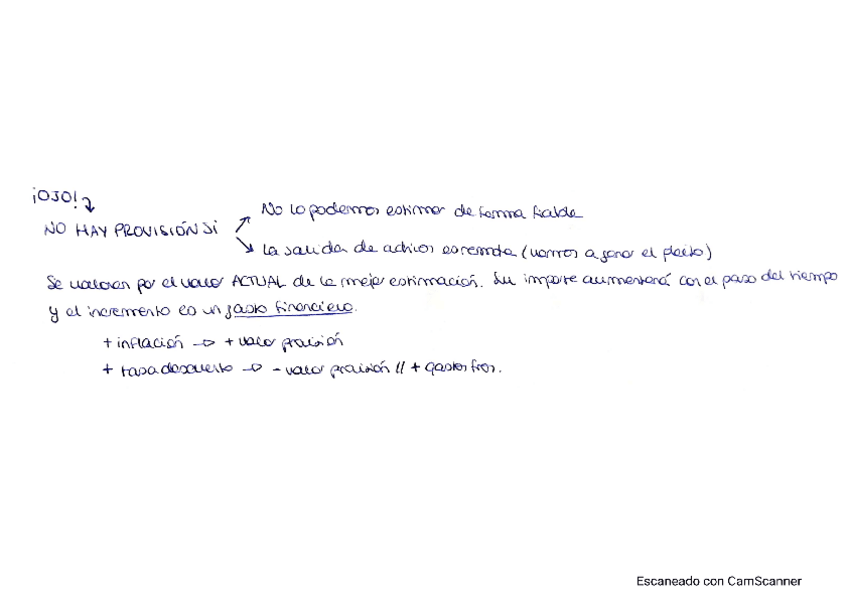 ¡OJO!
NO HAY PROVISIÓN SI
No lo podemos estimar de forma fiable
La salida de activos es remota (vamos a ganar el pleito)
Se valoran por el valor ACTUAL de la mejor estimación. Su importe aumentará con el paso del tiempo
y el incremento es un gasto financiero.
+ inflación → + valor provisión
+ tasa descuento → - valor provisión // + gastos fros.
Escaneado con CamScanner